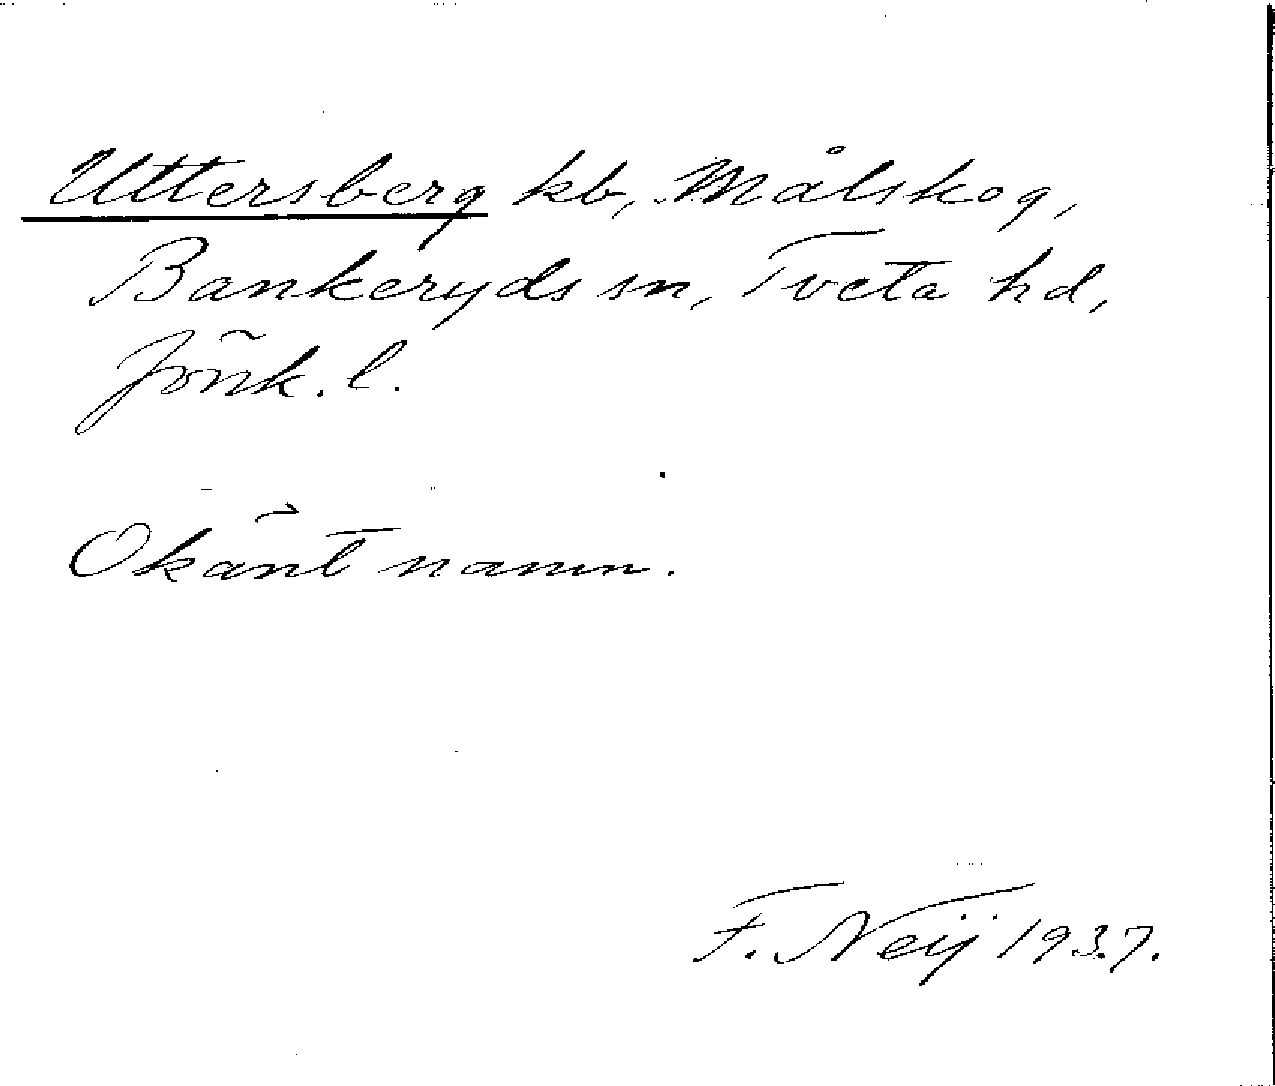 Uttersberg kb, Målskog,
Bankeryds sn, Tveta hd,
Jönk. l.
Okänt namn.
F. Neij 1937.